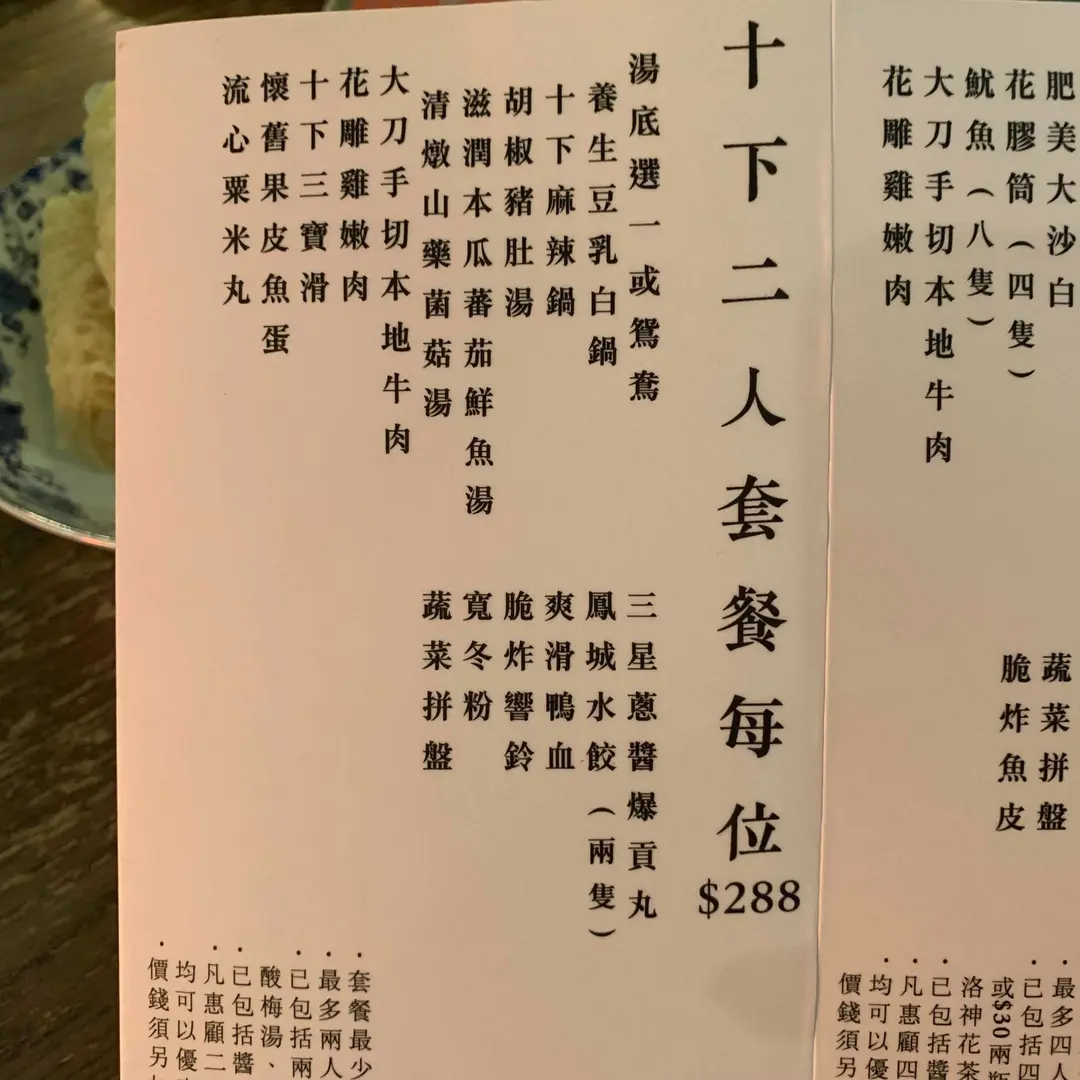 肥美大沙白
花膠筒(四隻)
魷魚(八隻)
大刀手切本地牛肉
花雕雞嫩肉
蔬菜拼盤
脆炸魚皮
・最多四人
・已包括四
或$30兩
洛神花茶
・已包括醬
・凡惠顧四
・均可以優
價錢須另
十下二人套餐每位
$288
湯底選一或鴛鴦
養生豆乳白鍋
十下麻辣鍋
胡椒豬肚湯
滋潤本瓜蕃茄鮮魚湯
清燉山藥菌菇湯
大刀手切本地牛肉
花雕雞嫩肉
十下三寶滑
懷舊果皮魚蛋
流心粟米丸
三星蔥醬爆貢丸
鳳城水餃(兩隻)
爽滑鴨血
脆炸響鈴
寬冬粉
蔬菜拼盤
・套餐最少
・最多兩人
・已包括兩
酸梅湯、
・已包括醬
・凡惠顧二
均可以優
・價錢須另